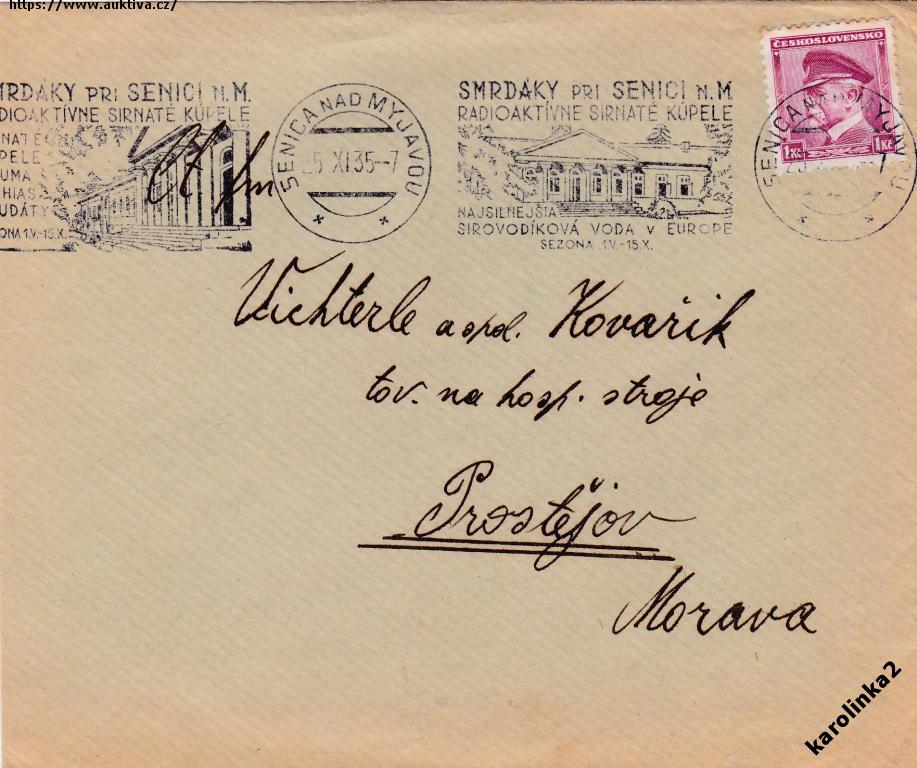 https://www.auktiva.cz/
ČESKOSLOVENSKO
1Kč 1Kč
MRDÁKY PRI SENICI N.M.
DIOAKTÍVNE SIRNATÉ KÚPELE
NATÉ
PELE
UMA
HIAS
UDÁTY
ONA 1.V.-15.X.
SENICA NAD MYJAVOU
5 XI.35-7
SMRDÁKY PRI SENICI N.M.
RADIOAKTÍVNE SIRNATÉ KÚPELE
NAJSILNEJŠIA
SIROVODÍKOVÁ VODA V EUROPE
SEZONA 1.V.-15.X.
SENICA NAD MYJAVOU
Vichterle a spol. Kovařik
tov. na hosp. stroje
Prostějov
Morava
karolinka2